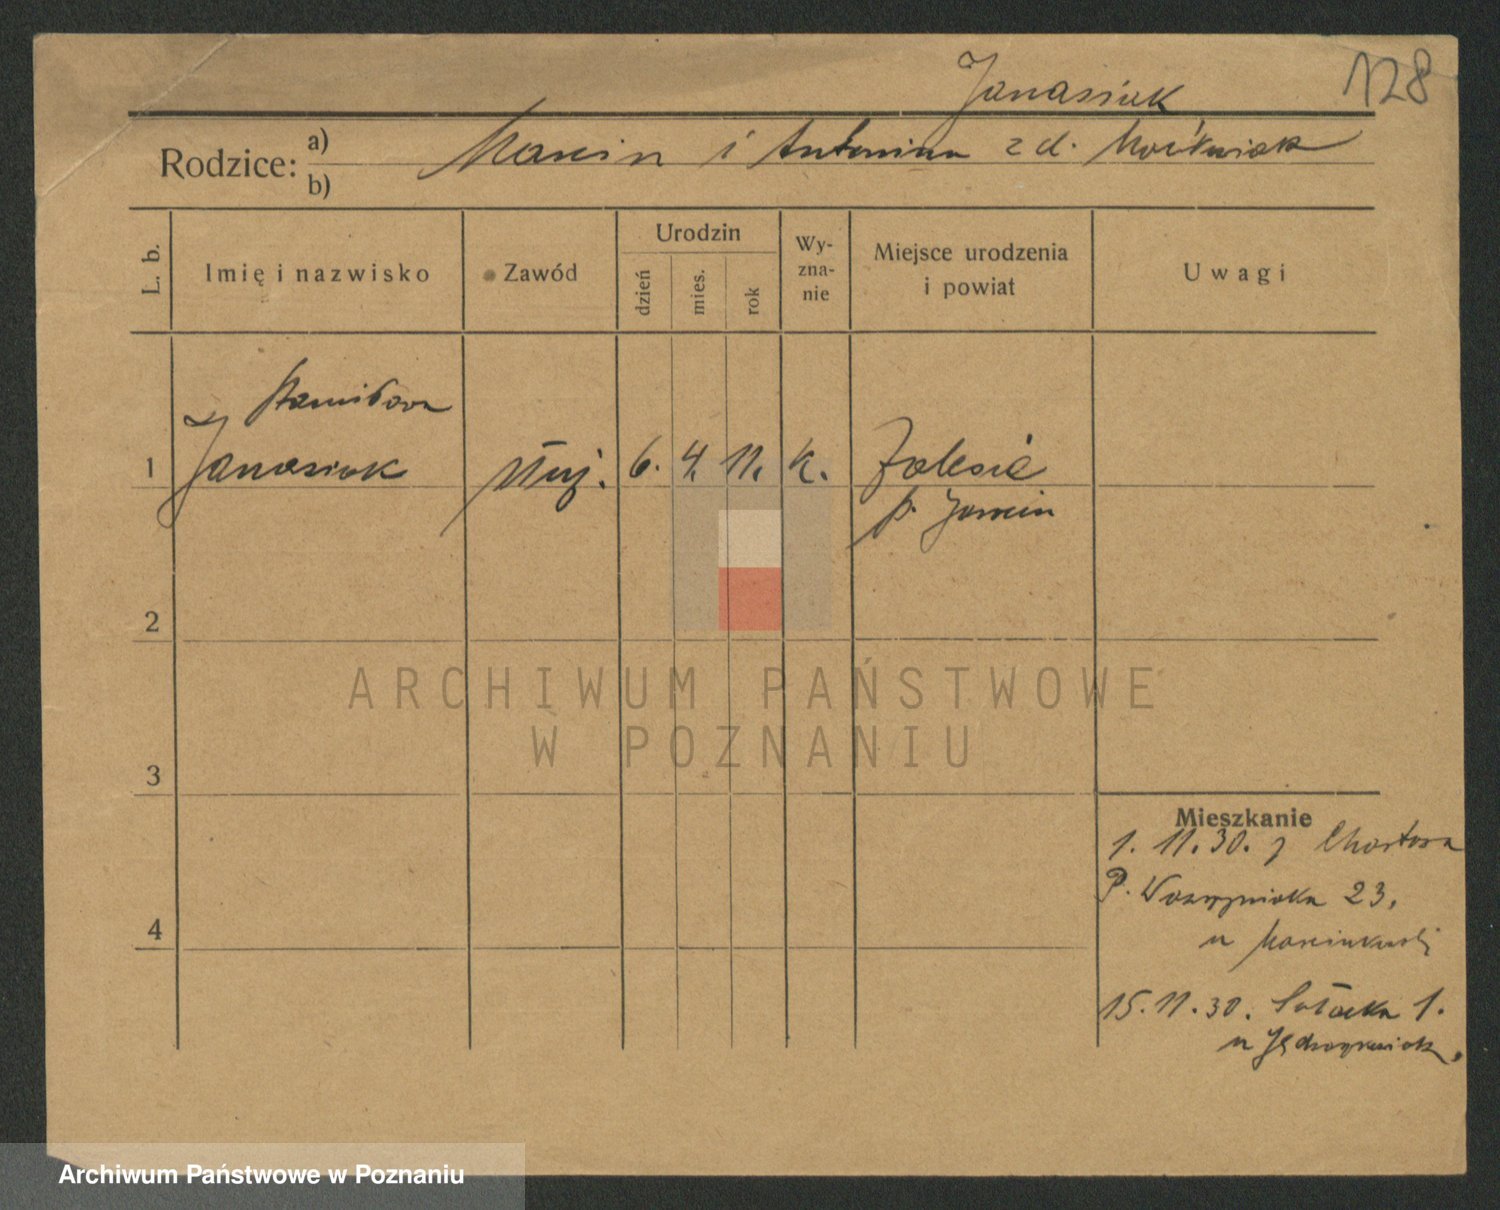 Janasiak
128
Rodzice: a) Marcin i Antonina z d.
b)
L. b. Imię i nazwisko Zawód Urodzin dzień mies. rok Wyznanie Miejsce urodzenia i powiat Uwagi
Stanisława
1 Janasiak służ. 6. 4. 11. k. Zalesie
p. Jarocin
2
ARCHIWUM PAŃSTWOWE
W POZNANIU
3
Mieszkanie
1. 11. 30. z
P. Wawrzyniaka 23,
u
4
15. 11. 30. Sołacka 1.
u
Archiwum Państwowe w Poznaniu